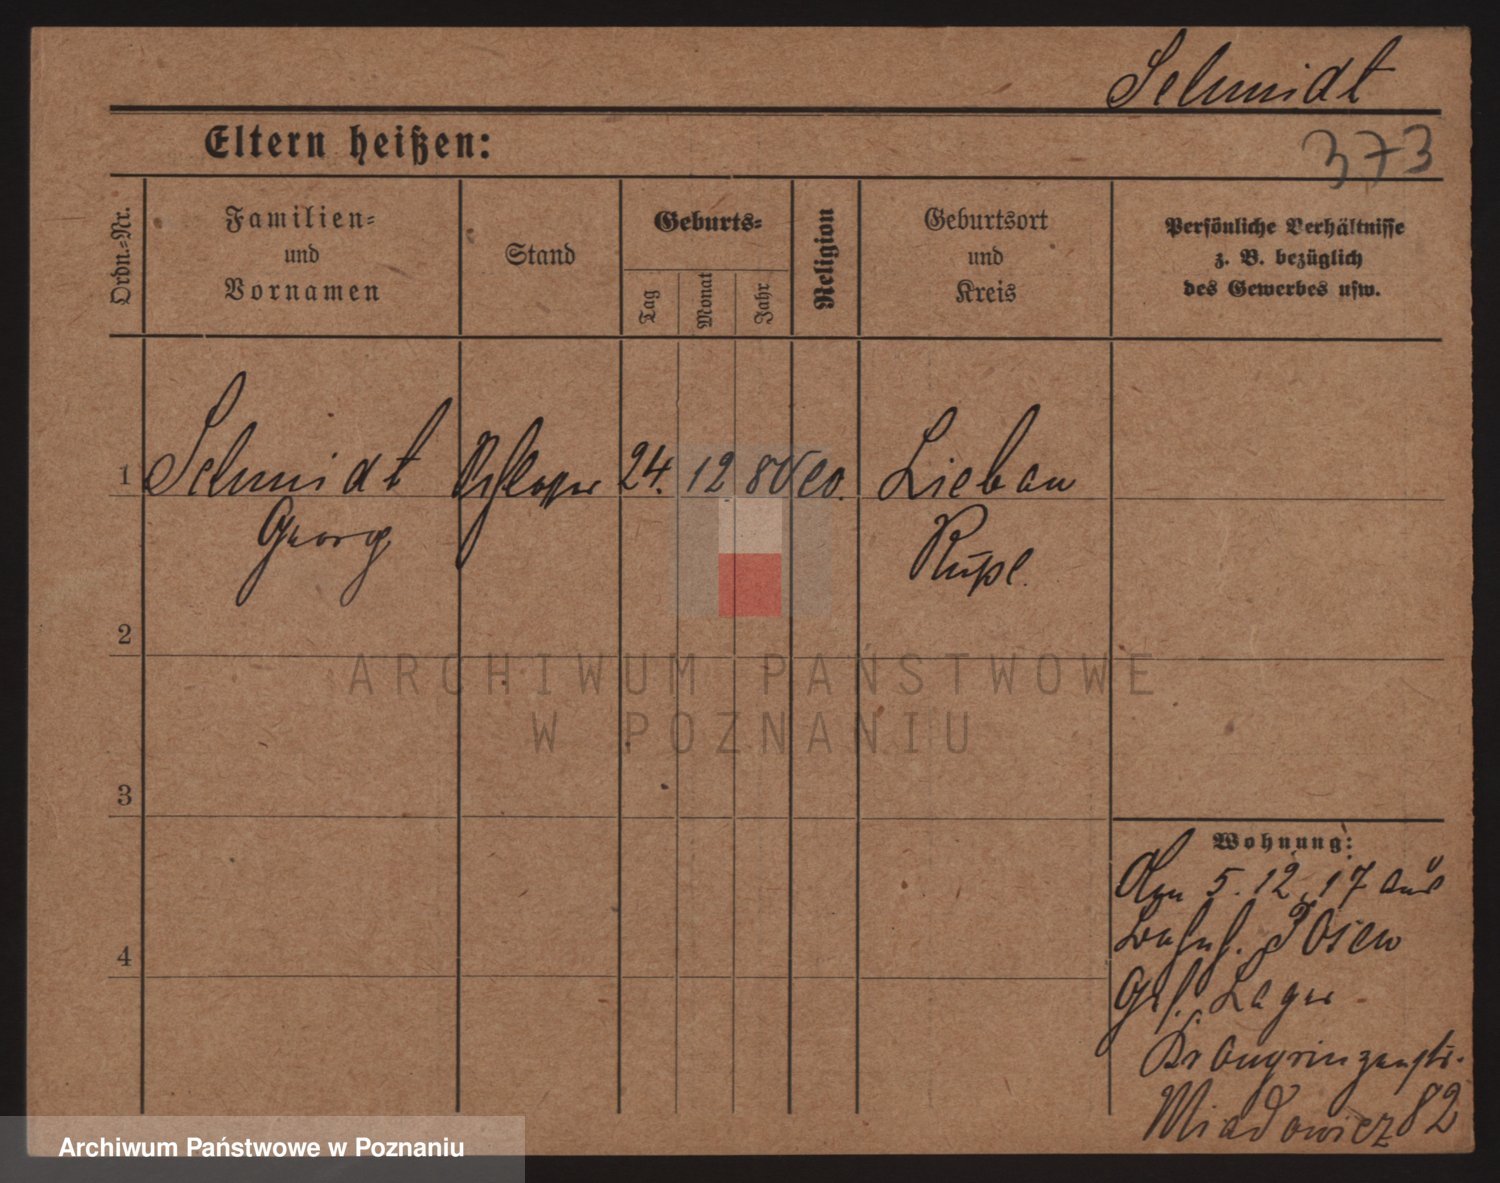 Schmidt
Eltern heißen:
373
Ordn.-Nr.
Familien-
und
Vornamen
Stand
Geburts-
Tag
Monat
Jahr
Religion
Geburtsort
und
Kreis
Persönliche Verhältnisse
z. B. bezüglich
des Gewerbes usw.
1 Schmidt 24. 12. 80 Libau
Georg Rußl.
2
3
4
Wohnung:
Am 5. 12. 17 aus
Posen
Gef. Lager
Kronprinzenstr.
Miadowicz 82
ARCHIWUM PAŃSTWOWE
W POZNANIU
Archiwum Państwowe w Poznaniu